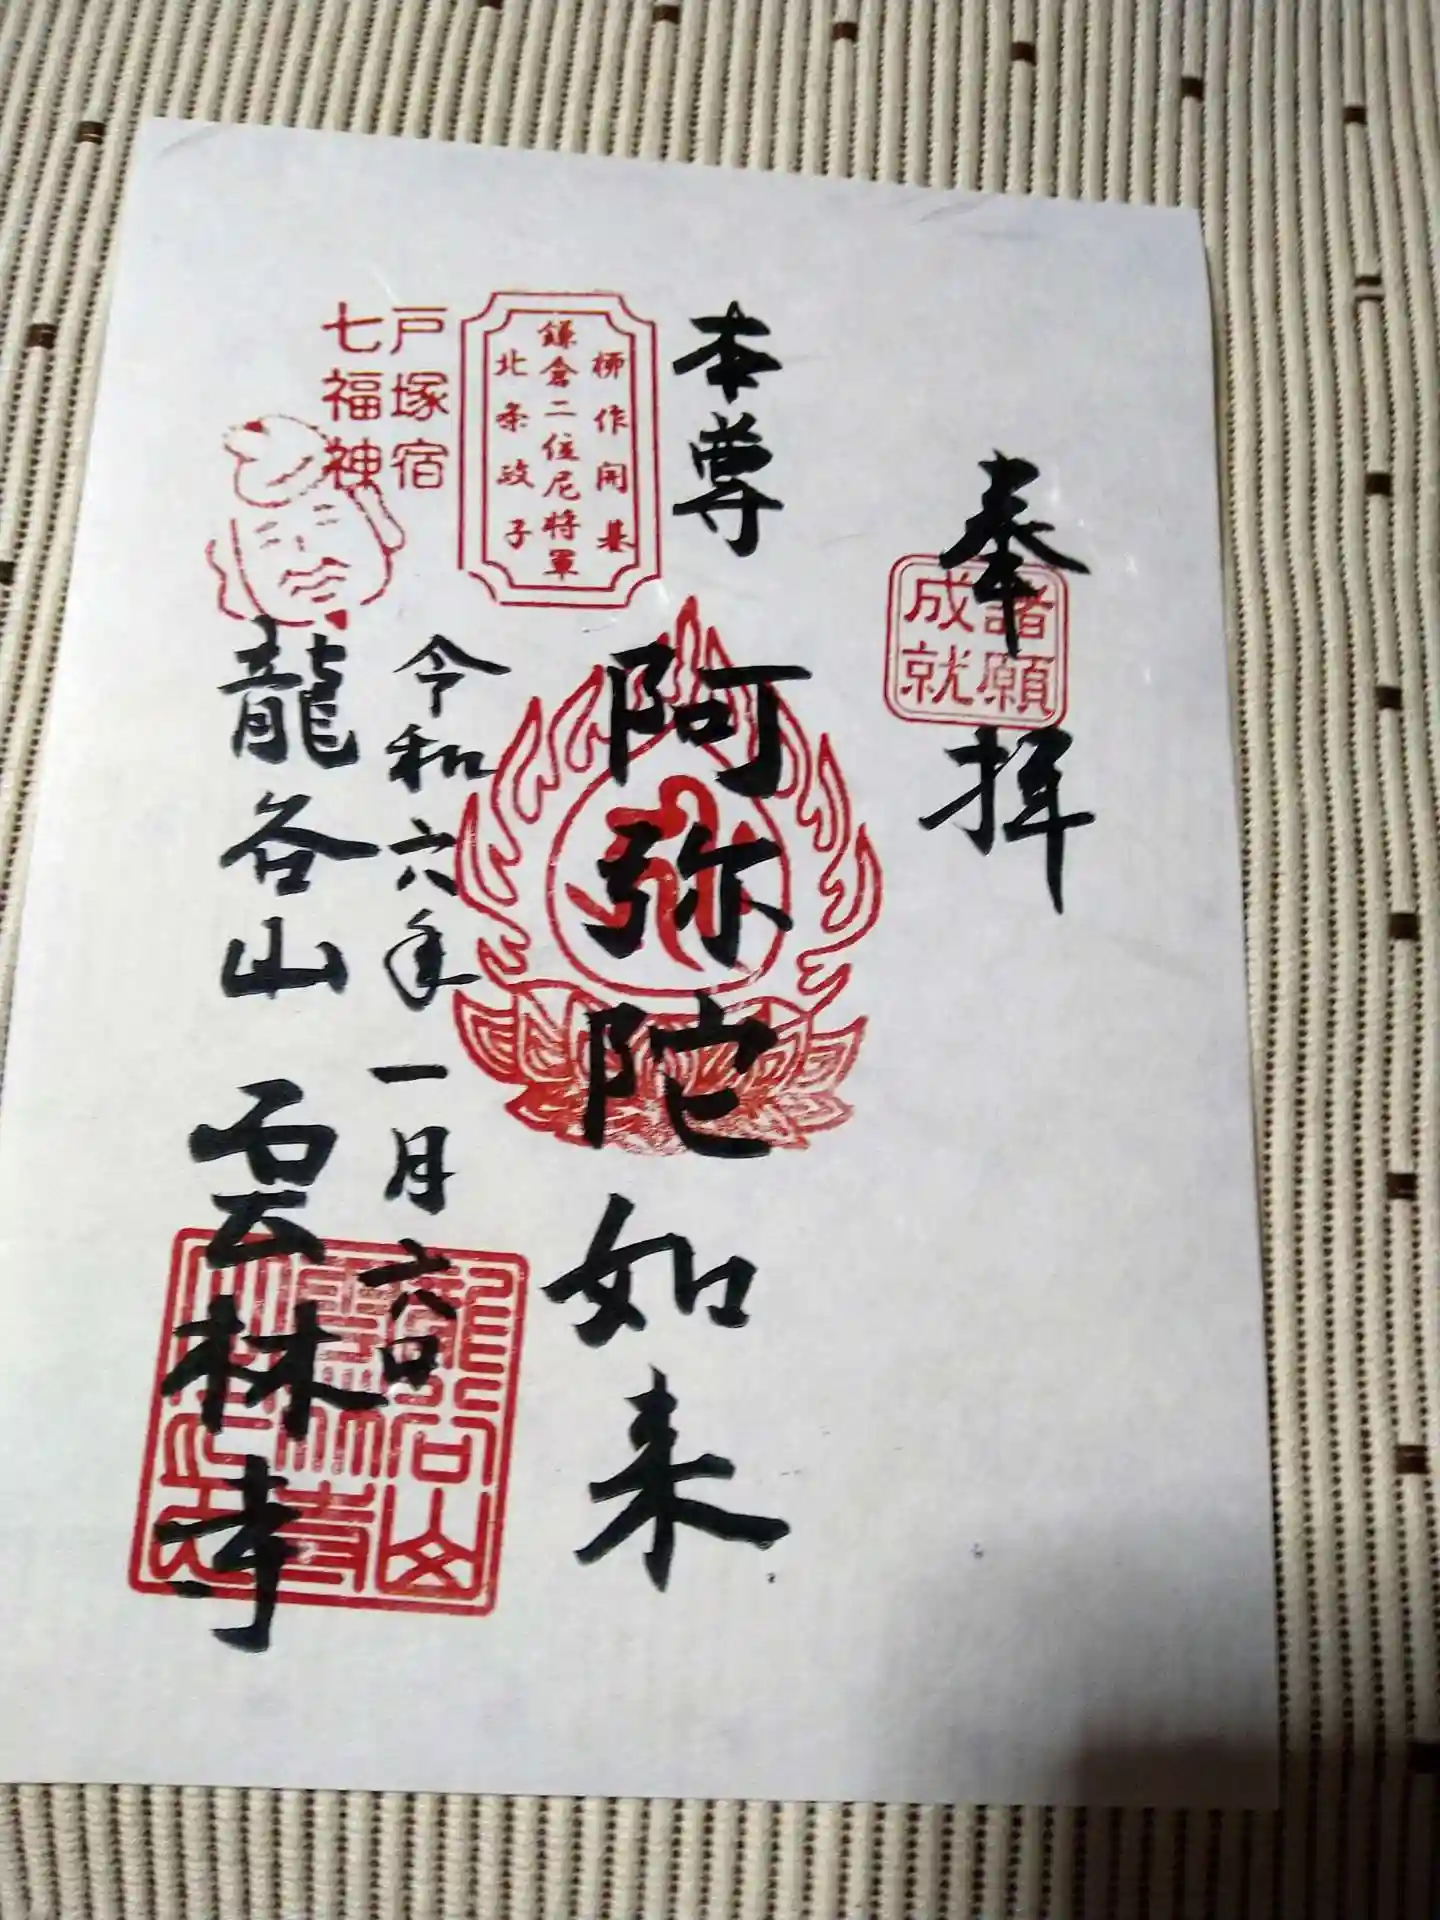 奉拝
諸願
成就
本尊
阿弥陀如来
柳作開基
鎌倉二位尼将軍
北条政子
戸塚宿
七福神
令和六年一月六日
龍谷山 雲林寺